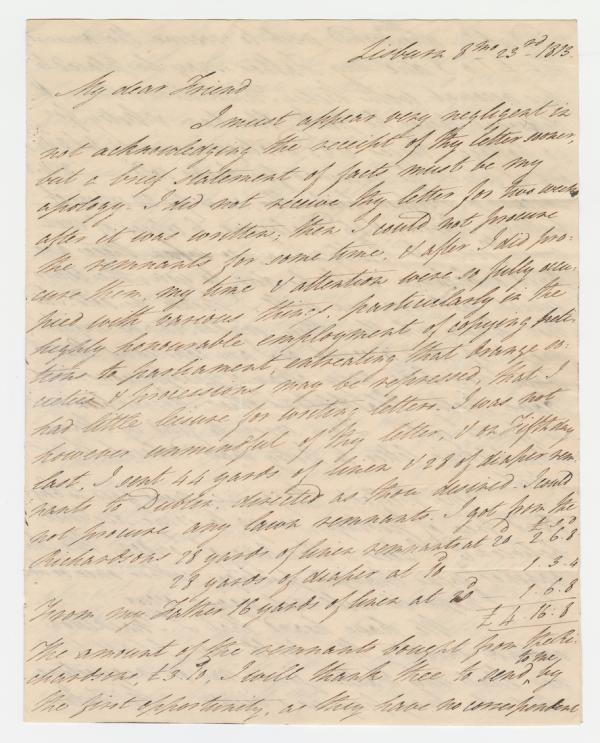 Lisburn 8mo 23rd 1813.
My dear Friend
I must appear very negligent in
not acknowledging the receipt of thy letter sooner,
but a brief statement of facts must be my
apology. I did not receive thy letter for two weeks
after it was written; then I could not procure
the remnants for some time, & after I did pro-
cure them, my time & attention were so fully occu-
pied with various things, particularly in the
highly honourable employment of copying peti-
tions to parliament, entreating that Orange so-
cieties & processions may be repressed, that I
had little leisure for writing letters. I was not
however unmindful of thy letter, & on Fifthday
last, I sent 44 yards of linen & 28 of diaper rem-
nants to Dublin directed as thou desired. I could
not procure any lawn remnants. I got from the
Richardsons 28 yards of linen remnants at 20d £2.6.8
28 yards of diaper at 10d 1.3.4
From my Father 16 yards of linen at 20d 1.6.8
£4.16.8
The amount of the remnants bought from the Ri-
chardsons, £3.10, I will thank thee to send to me by
the first opportunity, as they have no correspondent